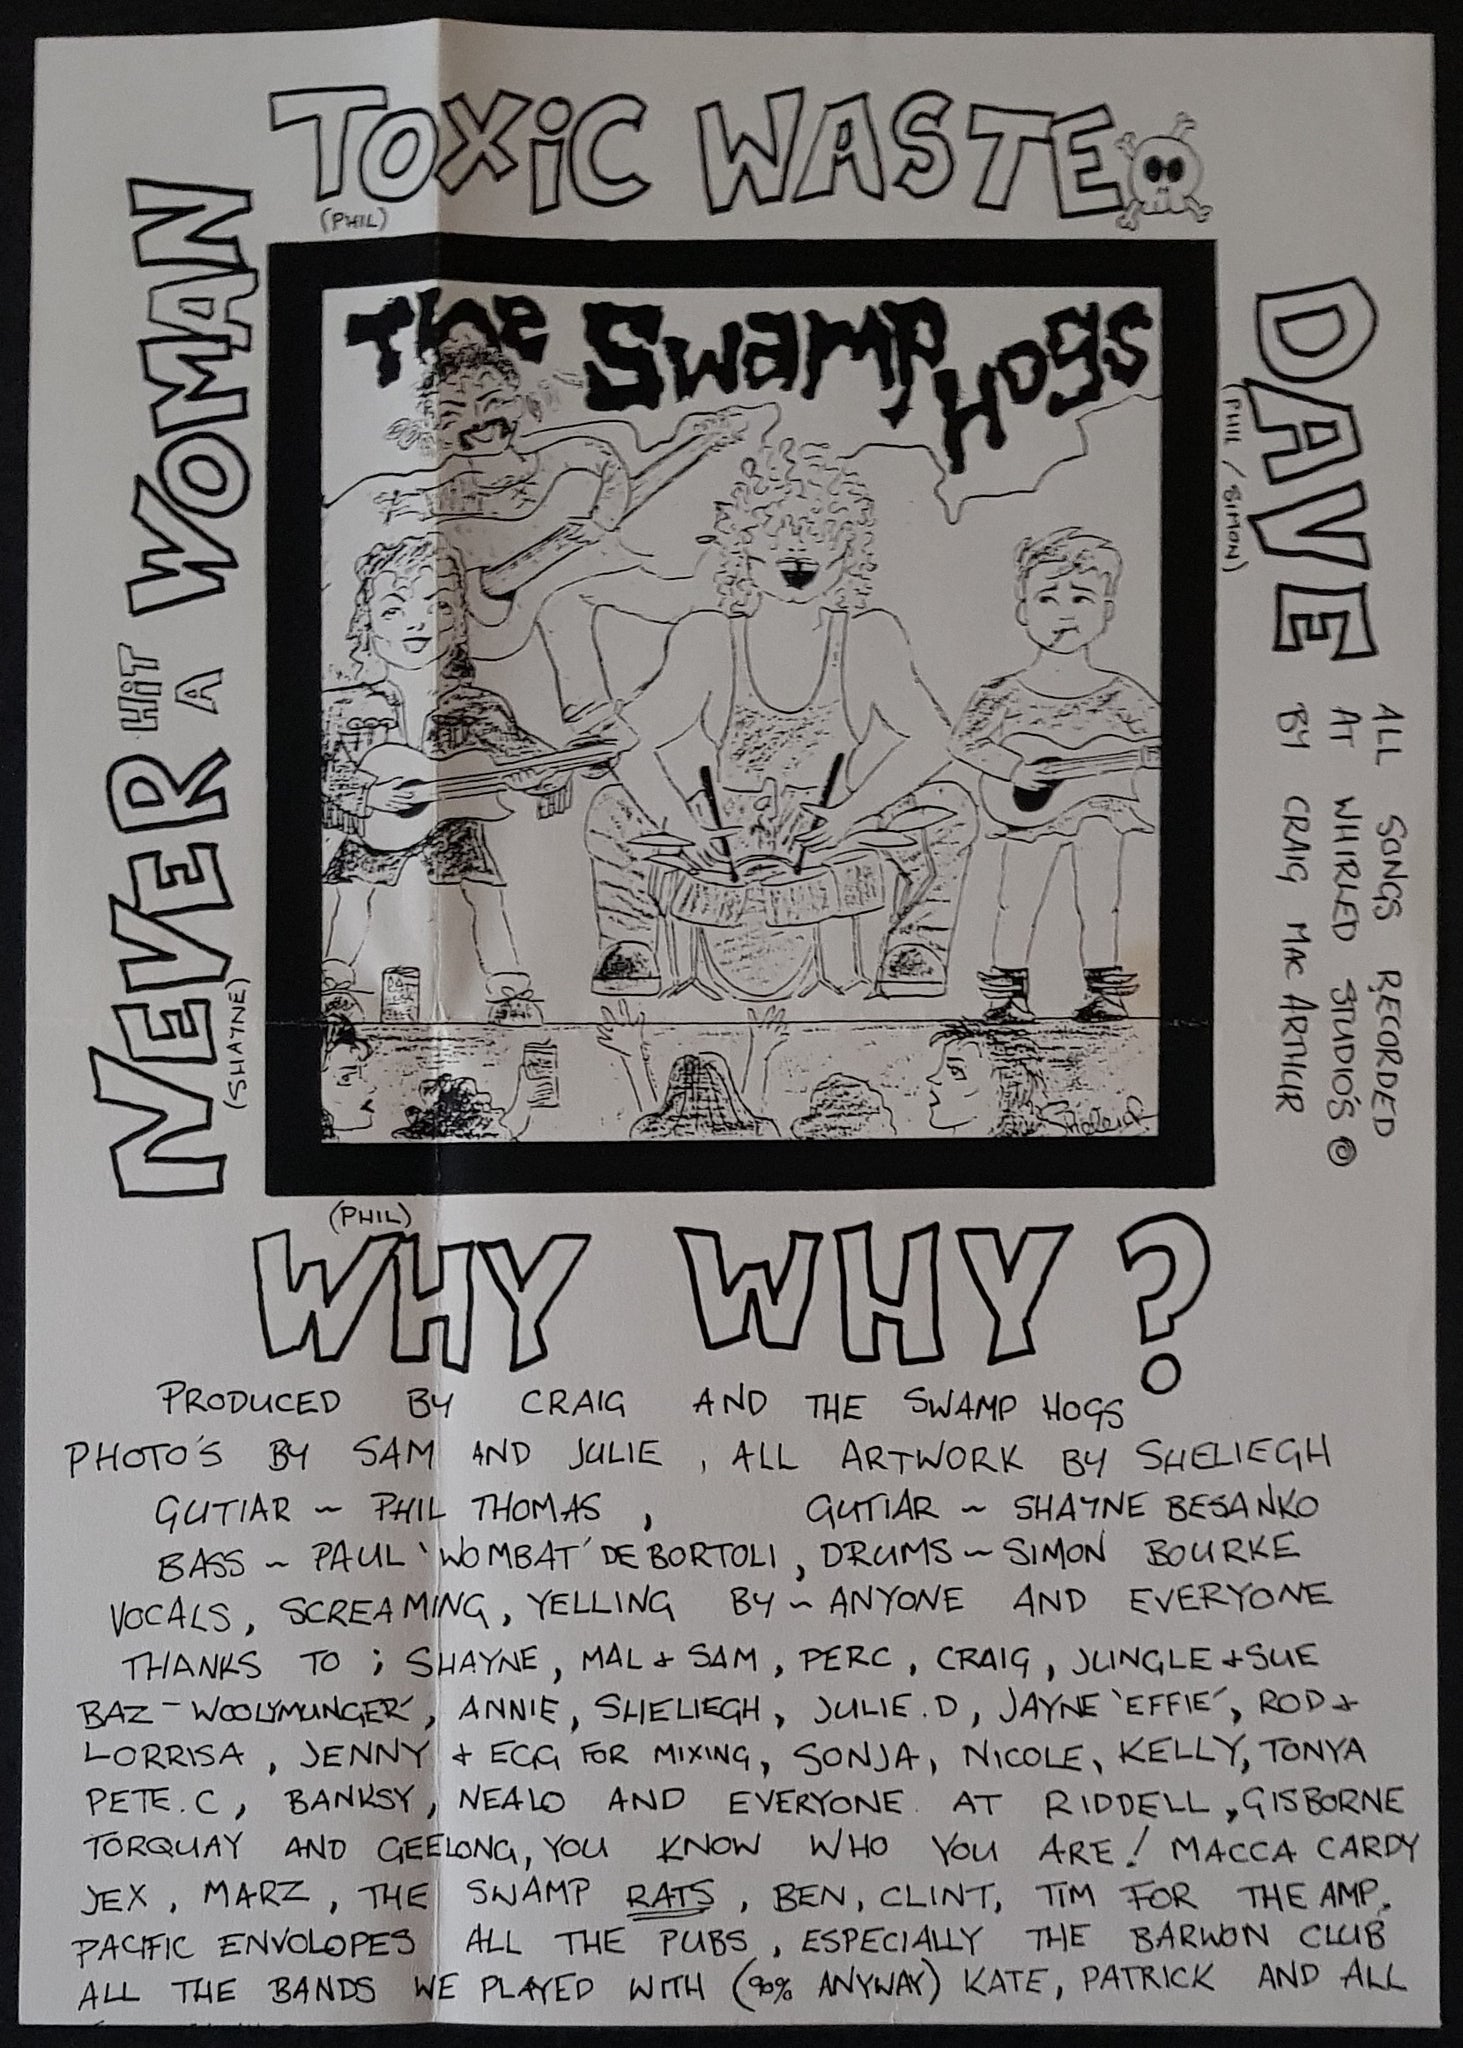 TOXIC WASTE
(PHIL)
NEVER HIT A WOMAN
(SHAYNE)
The Swamp Hogs
DAVE
(PHIL / SIMON)
ALL SONGS RECORDED
AT WHIRLED STUDIO'S ©
BY CRAIG MAC ARTHUR
(PHIL)
WHY WHY?
PRODUCED BY CRAIG AND THE SWAMP HOGS
PHOTO'S BY SAM AND JULIE, ALL ARTWORK BY SHELIEGH
GUTIAR ~ PHIL THOMAS, GUTIAR ~ SHAYNE BESANKO
BASS ~ PAUL 'WOMBAT' DE BORTOLI, DRUMS ~ SIMON BOURKE
VOCALS, SCREAMING, YELLING BY ~ ANYONE AND EVERYONE
THANKS TO ; SHAYNE, MAL & SAM, PERC, CRAIG, JUNGLE & SUE
BAZ - WOOLYMUNGER', ANNIE, SHELIEGH, JULIE.D, JAYNE 'EFFIE', ROD &
LORRISA, JENNY & EGG FOR MIXING, SONJA, NICOLE, KELLY, TONYA
PETE.C, BANKSY, NEALO AND EVERYONE AT RIDDELL, GISBORNE
TORQUAY AND GEELONG, YOU KNOW WHO YOU ARE! MACCA CARDY
JEX, MARZ, THE SWAMP RATS, BEN, CLINT, TIM FOR THE AMP.
PACIFIC ENVOLOPES ALL THE PUBS, ESPECIALLY THE BARWON CLUB
ALL THE BANDS WE PLAYED WITH (90% ANYWAY) KATE, PATRICK AND ALL